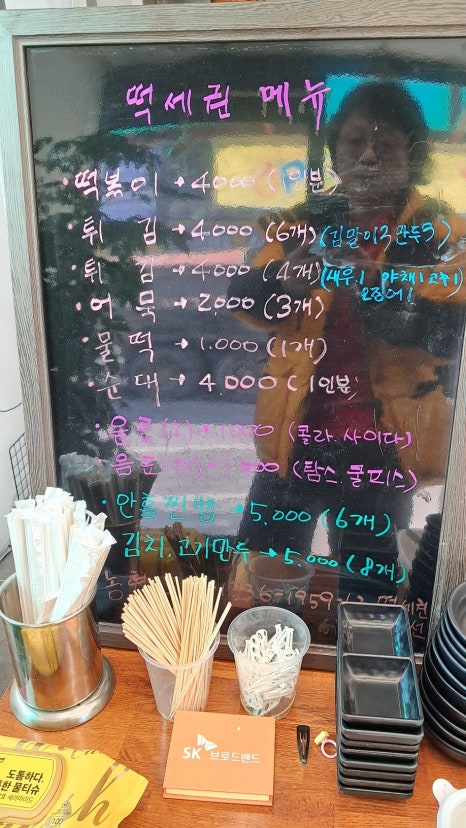 떡세권 메뉴
·떡볶이→4000(1인분)
·튀 김→4.000(6개)(김말이3 만두3)
·튀 김→4.000(4개)(새우1 야채1 고추1
오징어1
·어 묵→2,000(3개)
·물 떡→1.000(1개)
·순 대→4.000(1인분)
·음료 (콜라.사이다)
·음료 (탐스.쿨피스)
·안흥찐빵→5.000(6개)
김치.고기만두→5.000(8개)
농협 떡세권
SK 브로드밴드
도톰하다.
물티슈
100